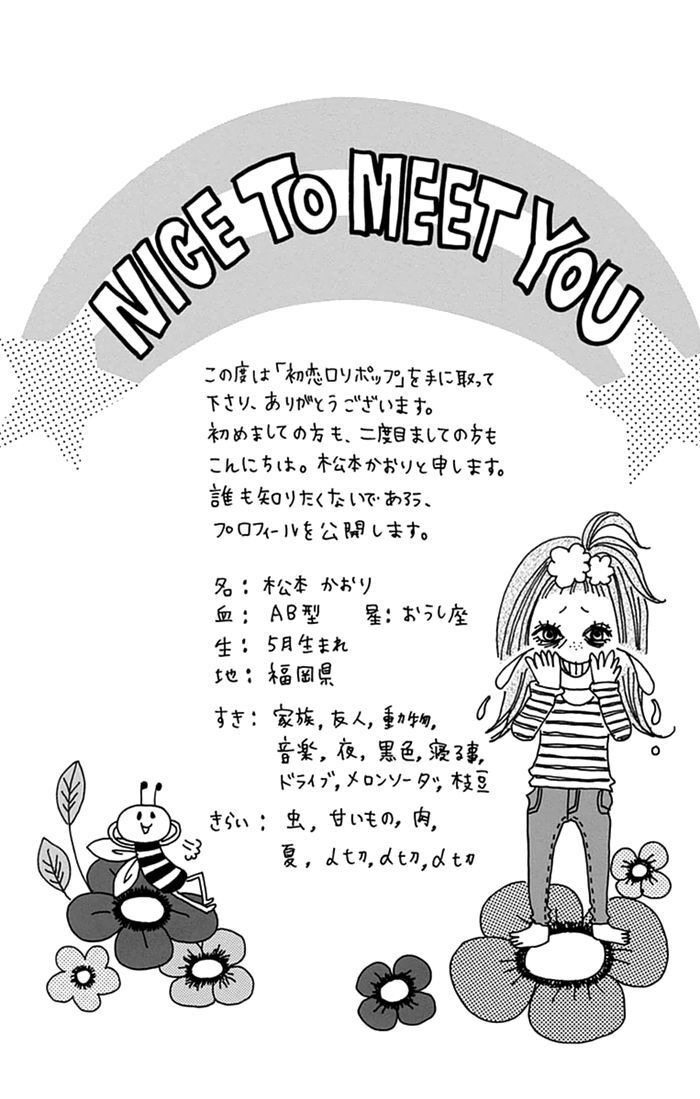 NICE TO MEET YOU
この度は「初恋ロリポップ」を手に取って
下さり、ありがとうございます。
初めましての方も、二度目ましての方も
こんにちは。松本かおりと申します。
誰も知りたくないであろう、
プロフィールを公開します。
名: 松本 かおり
血: AB型 星: おうし座
生: 5月生まれ
地: 福岡県
すき: 家族, 友人, 動物,
音楽, 夜, 黒色, 寝る事,
ドライブ, メロンソーダ, 枝豆
きらい: 虫, 甘いもの, 肉,
夏, 〆切, 〆切, 〆切